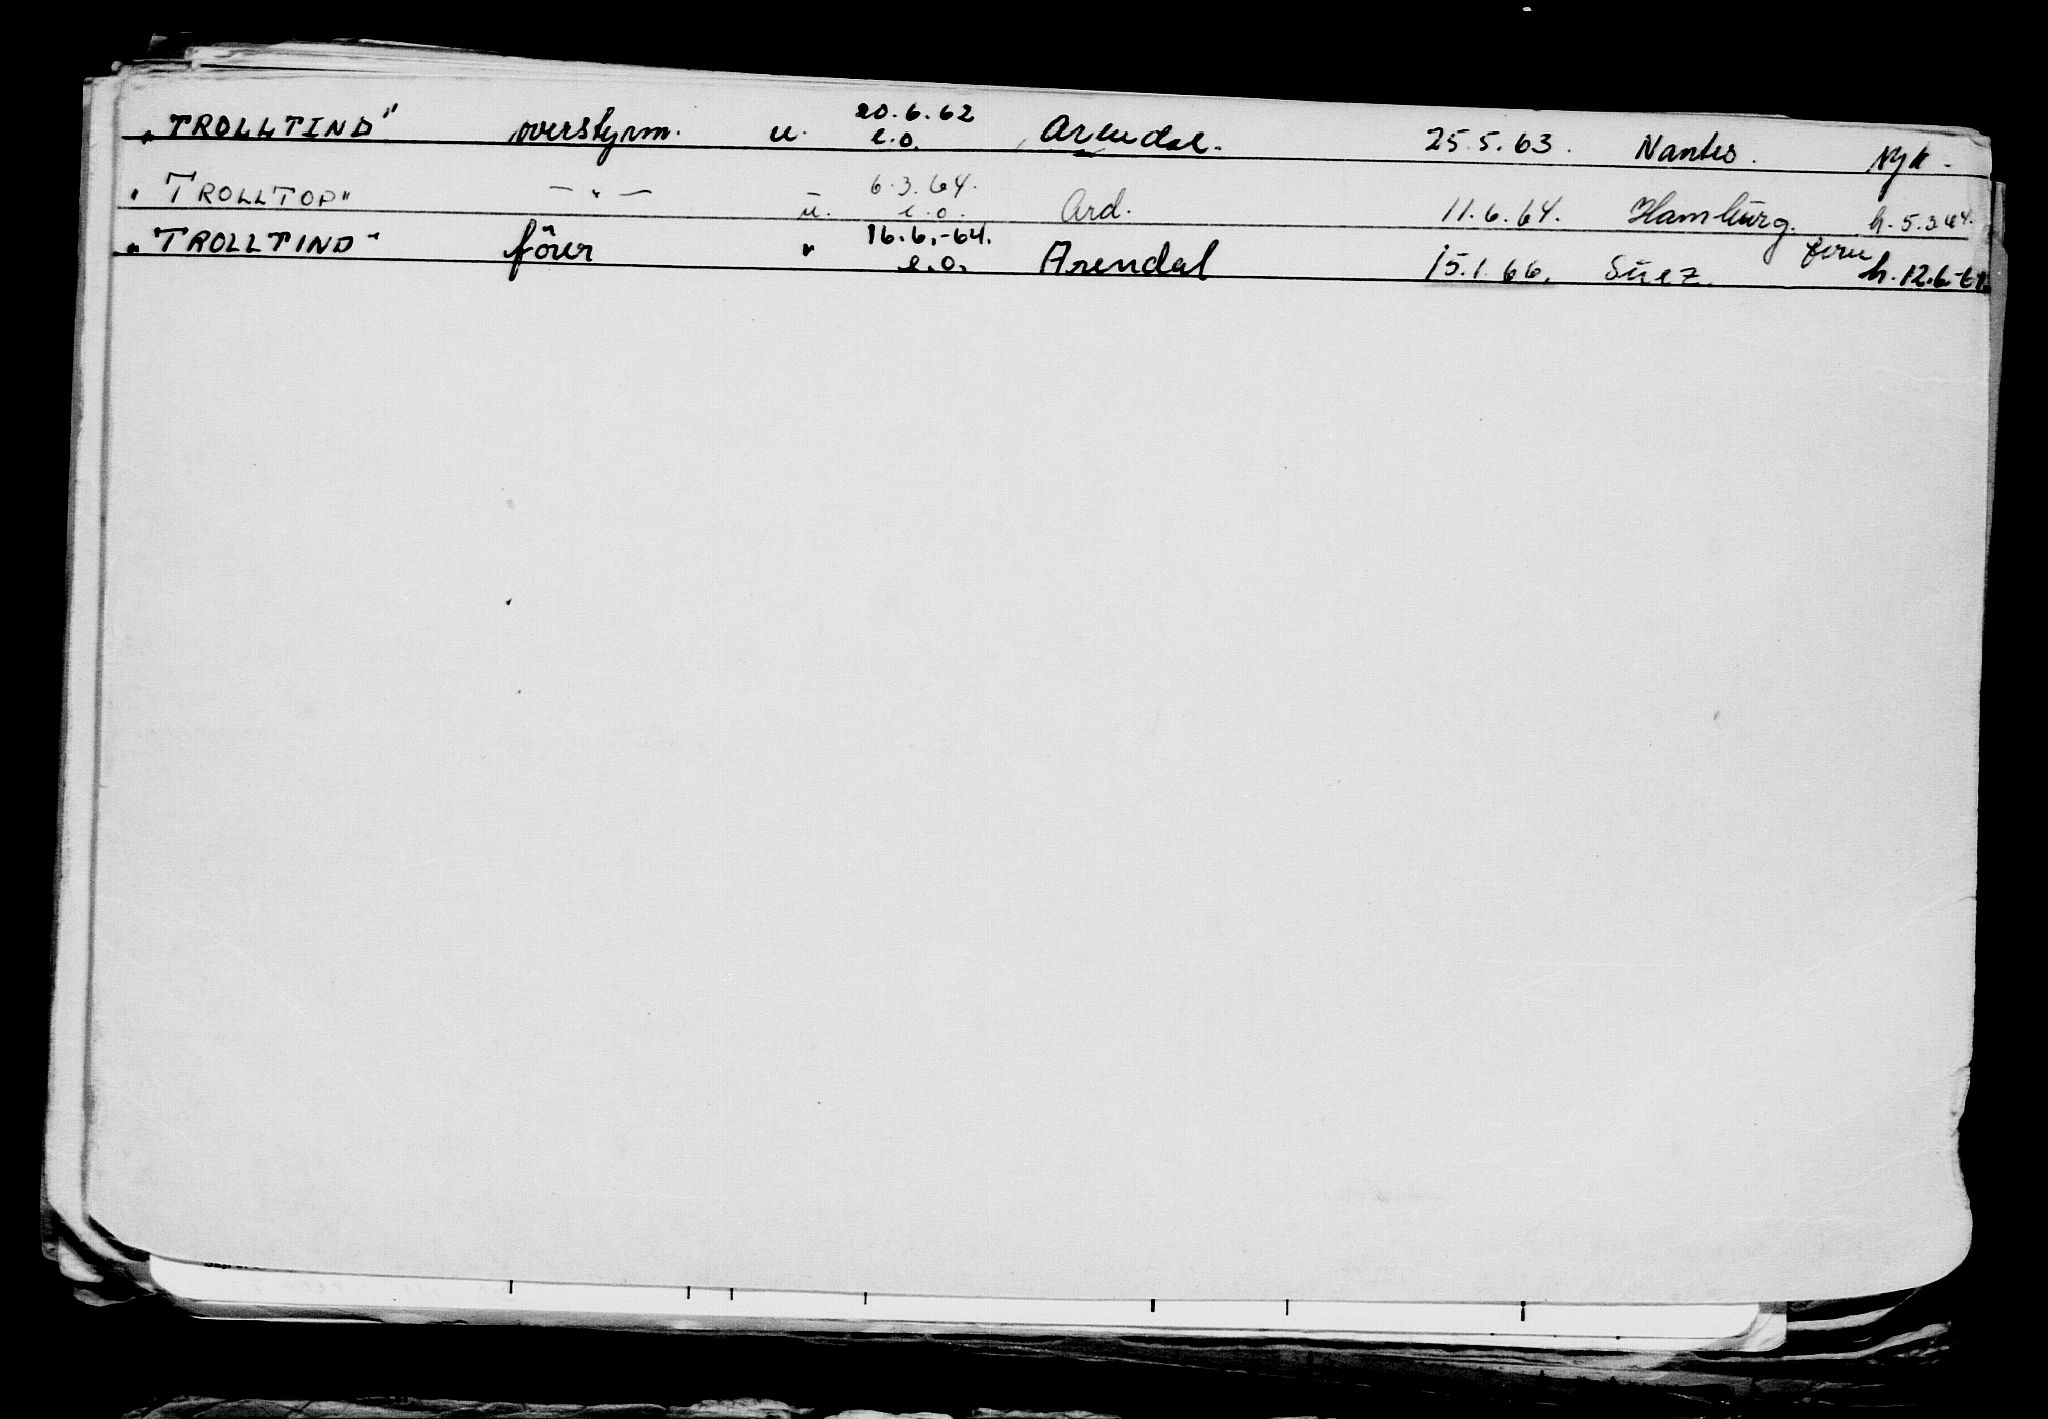 „TROLLTIND" overstyrm. u. 20.6.62 e.o. Arendal. 25.5.63. Nantes.
„TROLLTOP" — " — u. 6.3.64. e.o. Ard. 11.6.64. Hamburg. h. 5.3.64.
„TROLLTIND" förer " 16.6.-64. e.o. Arendal 15.1.66. Suez. h. 12.6-